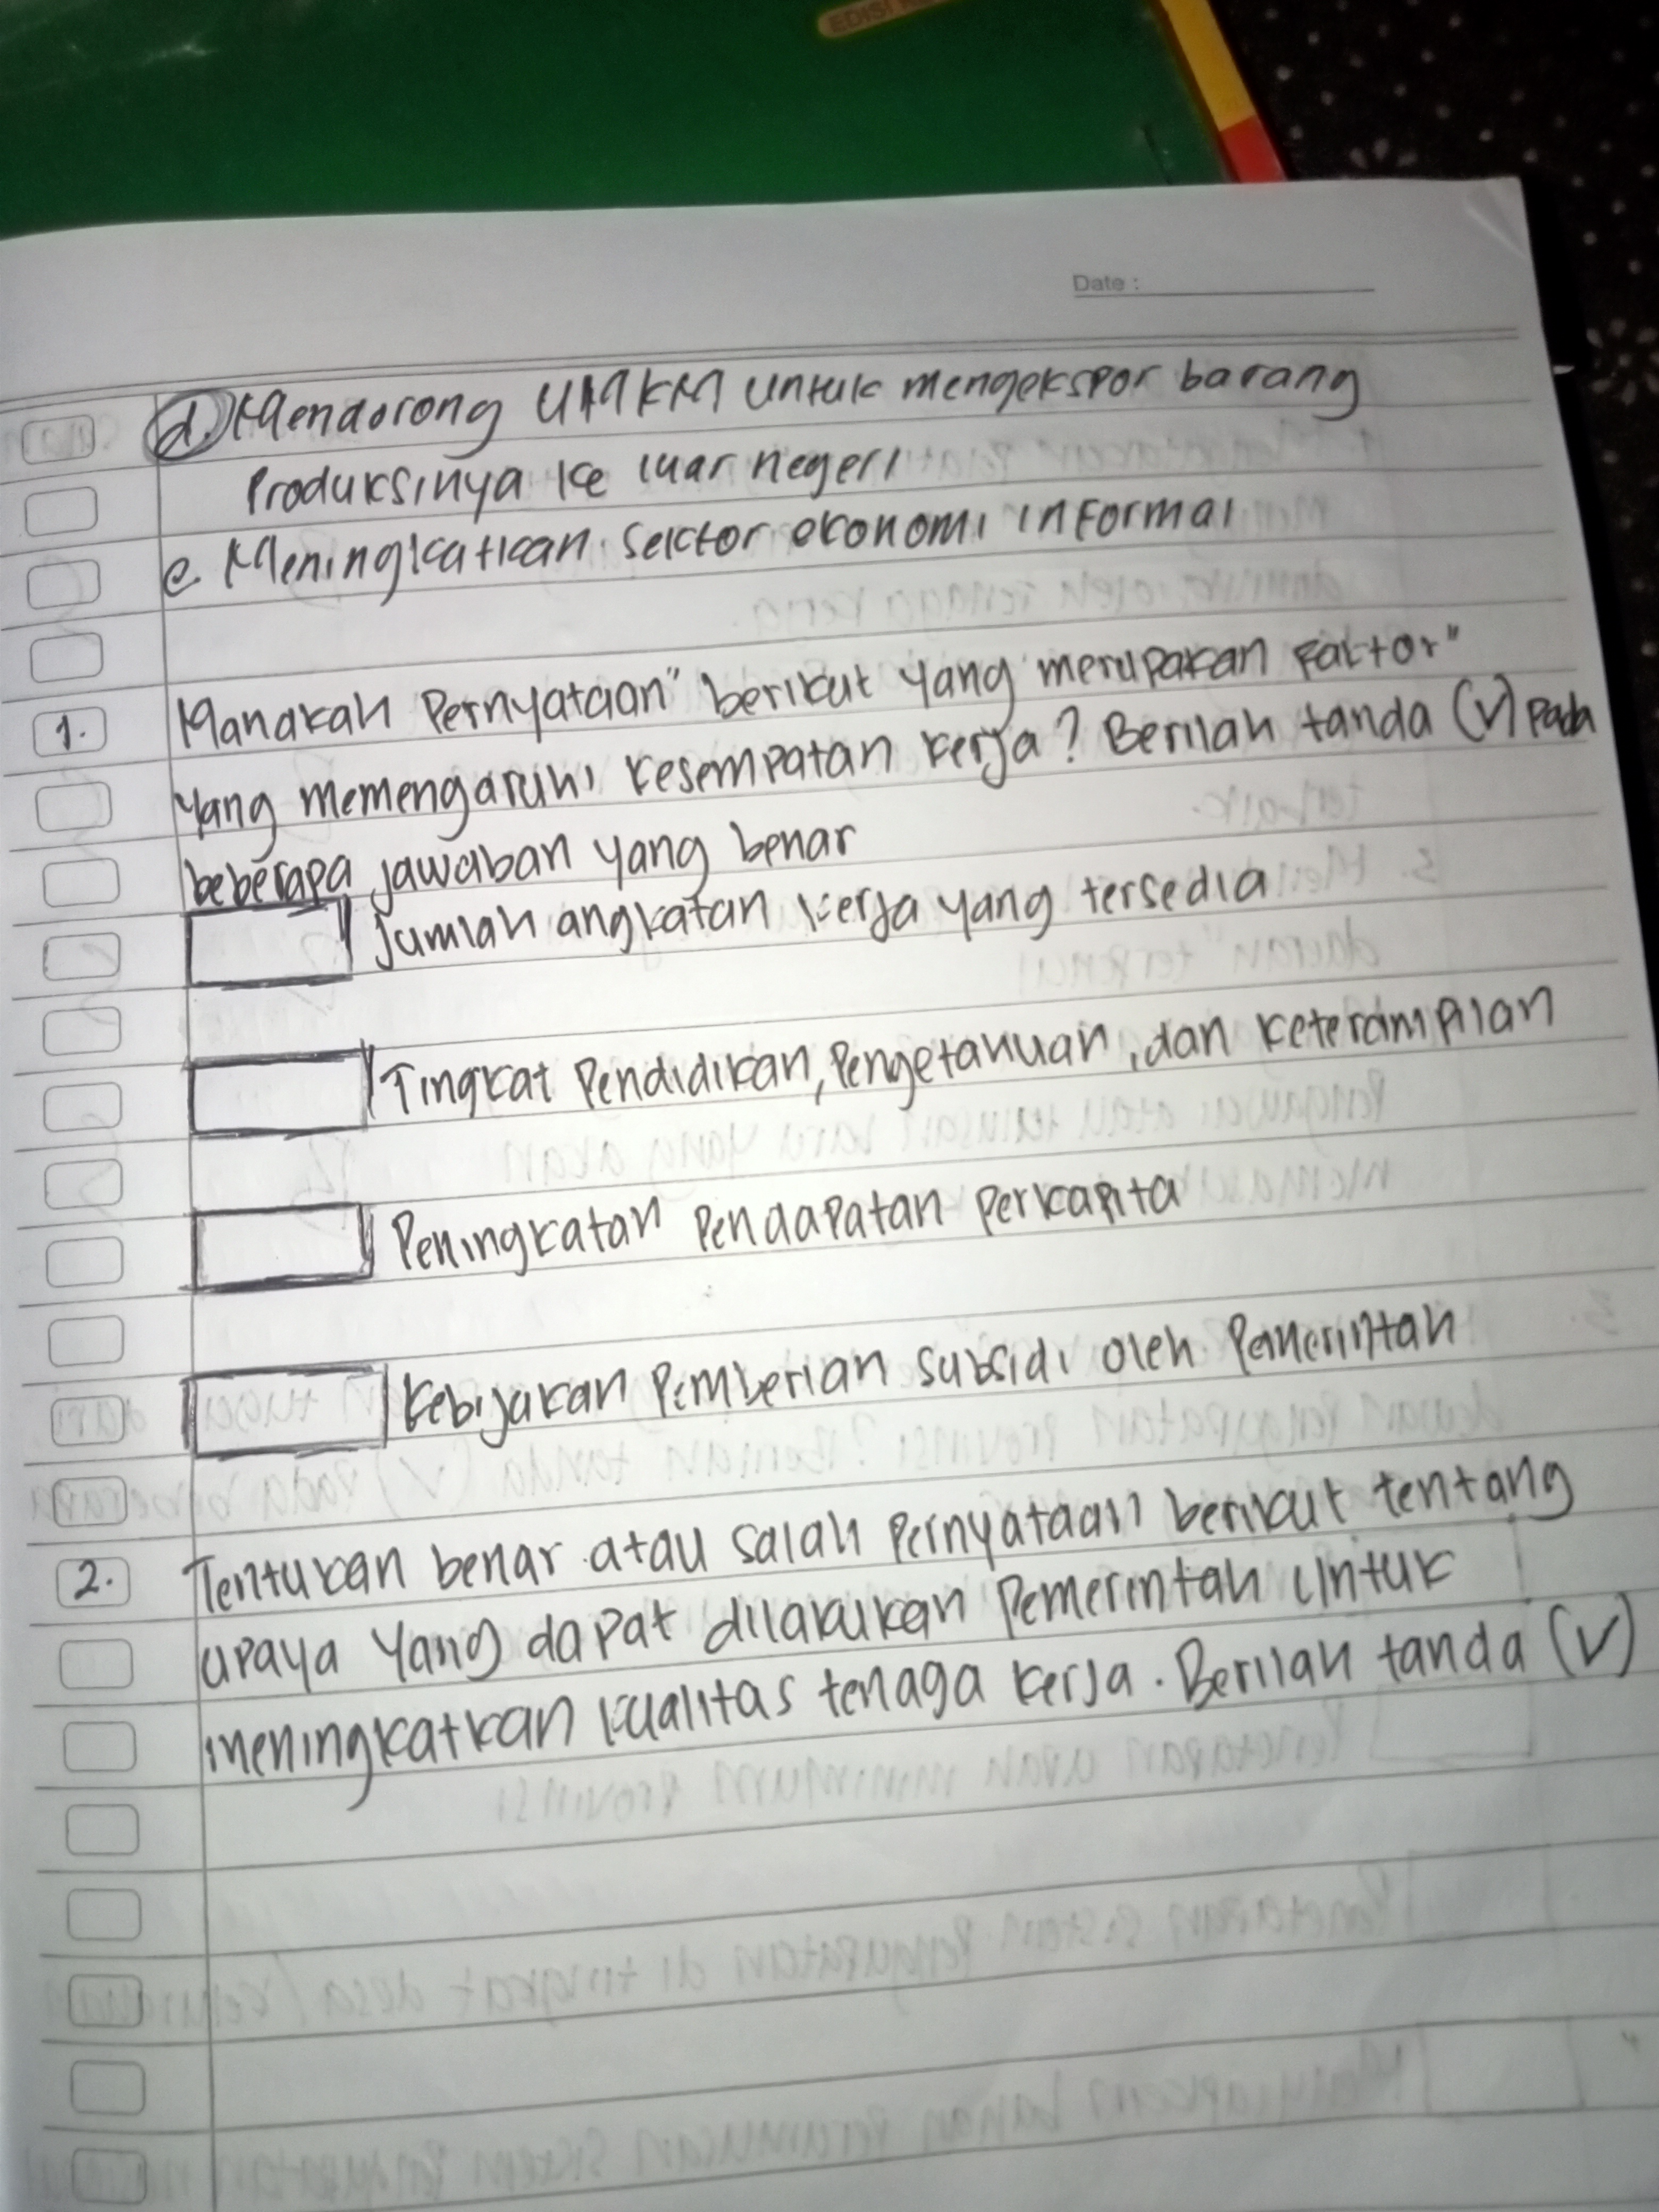 EDISI
Date :
d. Mendorong UMKM untuk mengekspor barang
Produksinya ke luar negeri
e. Meningkatkan sektor ekonomi informal
1. Manakah Pernyataan" berikut yang merupakan Faktor"
yang memengaruhi kesempatan kerja? Berilah tanda (V) pada
beberapa jawaban yang benar
Jumlah angkatan kerja yang tersedia
Tingkat Pendidikan, Pengetahuan, dan keterampilan
Peningkatan Pendapatan Perkapita
Kebijakan Pemberian subsidi oleh Pemerintah
2. Tentukan benar atau salah Pernyataan berikut tentang
upaya yang dapat dilakukan Pemerintah Untuk
meningkatkan kualitas tenaga kerja. Berilah tanda (V)